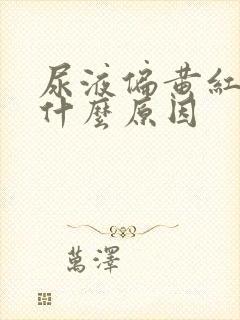 尿液偏黄紅
什麼原因
萬澤